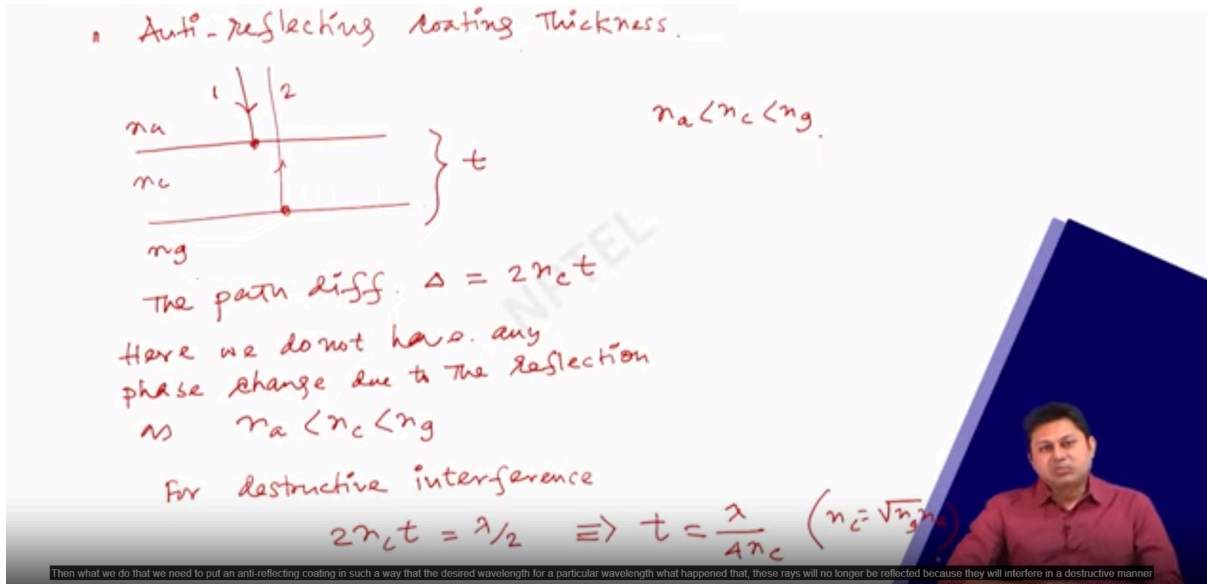 Anti-reflecting coating Thickness.
1
2
na
nc
ng
t
na < nc < ng.
The path diff. Δ = 2nct
Here we do not have any
phase change due to the reflection
as na < nc < ng
For destructive interference
2nct = λ/2 ≡> t = λ/4nc (nc = √ngna)
NPTEL
Then what we do that we need to put an anti-reflecting coating in such a way that the desired wavelength for a particular wavelength what happened that, these rays will no longer be reflected because they will interfere in a destructive manner